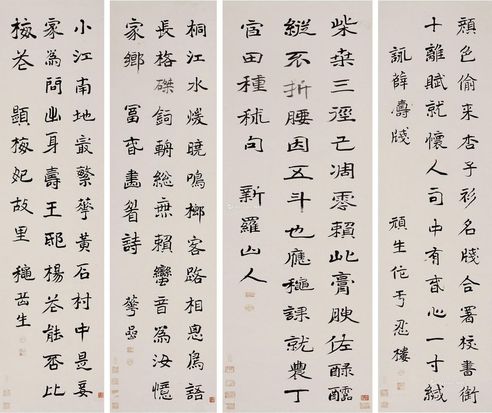 顏色偷來杏子衫名牋合署校書銜
十離賦就懷人句中有春心一寸緘
詠薛濤牋 頑生 忍樓
柴桑三徑已凋零賴此膏腴佐醁醽
縱不折腰因五斗也應穜課就農丁
官田種秫句 新羅山人
桐江水煖曉鳴榔客路相思鳥語
長格磔鉤輈總無賴蠻音為汝憶
家鄉 冨春畫眉詩 華嵒
小江南地最繁華黃石村中是妾
家為問出身壽王邸楊花能否比
梅花 題梅妃故里 生